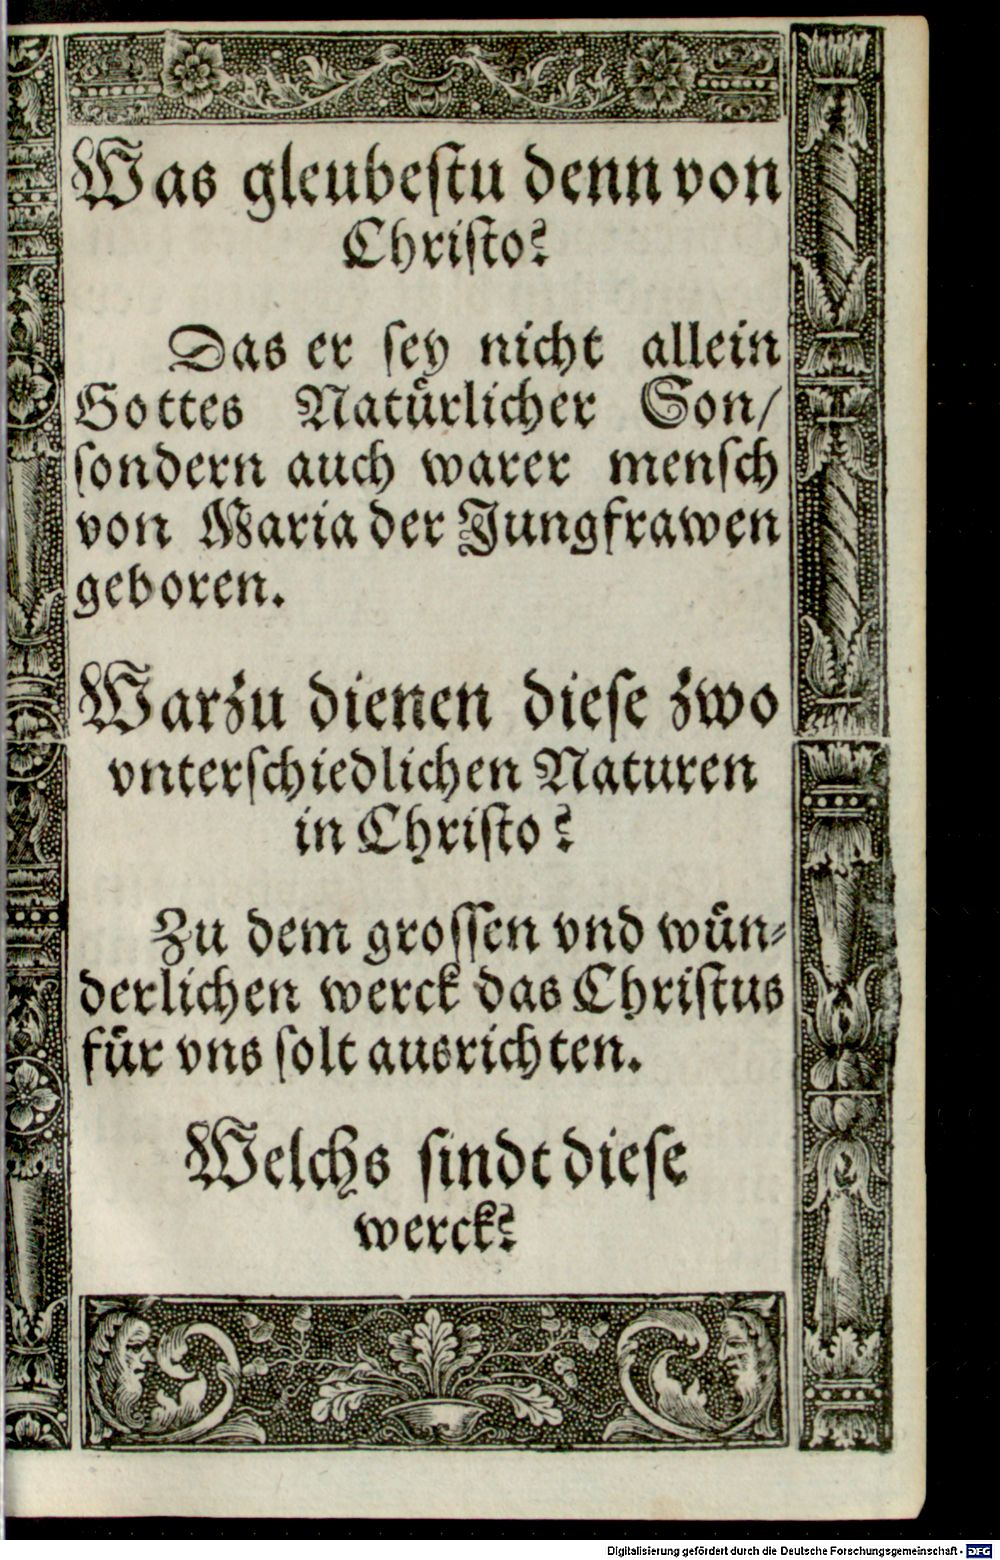 Was gleubeſtu denn von
Chriſto?
Das er ſey nicht allein
Gottes Natürlicher Son/
ſondern auch warer menſch
von Maria der Jungfrawen
geboren.
Warzu dienen dieſe zwo
vnterſchiedlichen Naturen
in Chriſto?
Zu dem groſſen vnd wün⸗
derlichen werck das Chriſtus
für vns ſolt ausrichten.
Welchs ſindt dieſe
werck?
Digitalisierung gefördert durch die Deutsche Forschungsgemeinschaft - DFG